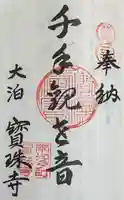 奉納
千手觀世音
大泊
寶珠寺